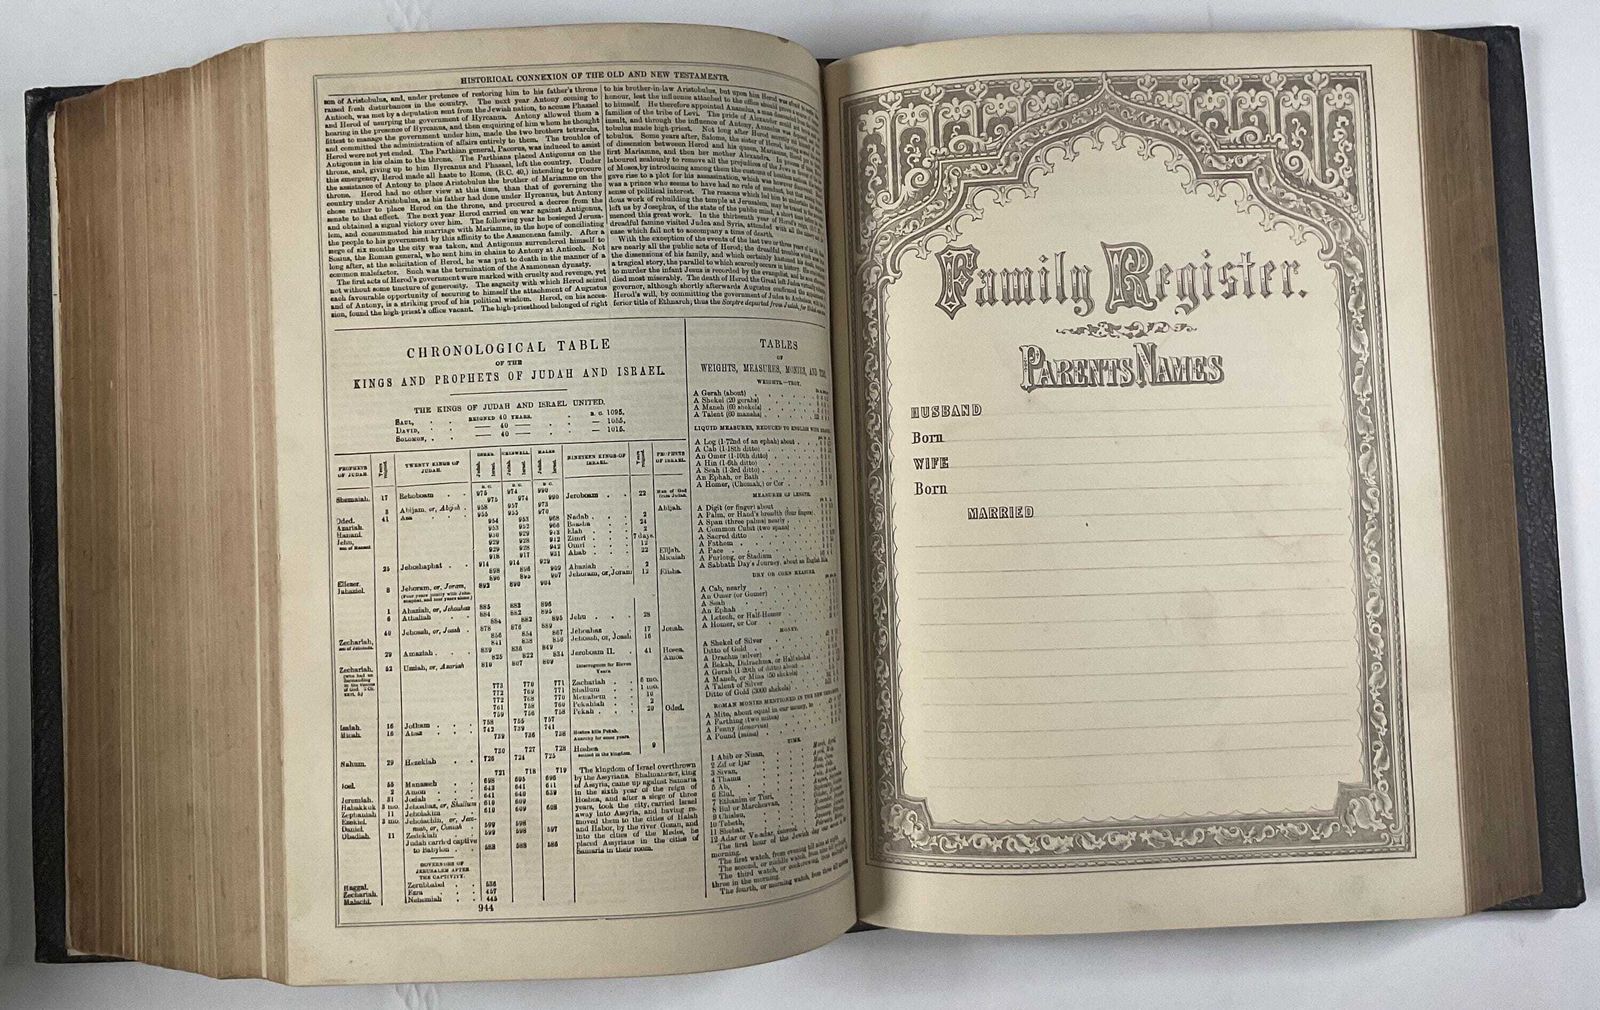 HISTORICAL CONNEXION OF THE OLD AND NEW TESTAMENTS.
son of Aristobulus, and, under pretence of restoring him to his father's throne
raised fresh disturbances in the country. The next year Antony coming to
Antioch, was met by a deputation sent from the Jewish nation, to accuse Phasael
and Herod of usurping the government of Hyrcanus. Antony allowed them a
hearing in the presence of Hyrcanus, and then enquiring of him whom he thought
fittest to manage the government under him, made the two brothers tetrarchs,
and committed the administration of affairs entirely to them. The troubles of
Herod were not yet ended. The Parthian general, Pacorus, was induced to assist
Antigonus in his claim to the throne. The Parthians placed Antigonus on the
throne, and, giving up to him Hyrcanus and Phasael, left the country. Under
this emergency, Herod made all haste to Rome, (B.C. 40,) intending to procure
the assistance of Antony to place Aristobulus the brother of Mariamne on the
throne. Herod had no other view at this time, than that of governing the
country under Aristobulus, as his father had done under Hyrcanus, but Antony
chose rather to place Herod on the throne, and procured a decree from the
senate to that effect. The next year Herod carried on war against Antigonus,
and obtained a signal victory over him. The following year he besieged Jerusa-
lem, and consummated his marriage with Mariamne, in the hope of conciliating
the people to his government by this affinity to the Asamonean family. After a
siege of six months the city was taken, and Antigonus surrendered himself to
Sosius, the Roman general, who sent him in chains to Antony at Antioch. Not
long after, at the solicitation of Herod, he was put to death in the manner of a
common malefactor. Such was the termination of the Asamonean dynasty.
The first acts of Herod's government were marked with cruelty and revenge, yet
not without some tincture of generosity. The sagacity with which Herod seized
each favourable opportunity of securing to himself the attachment of Augustus
and of Antony, is a striking proof of his political wisdom. Herod, on his acces-
sion, found the high-priest's office vacant. The high-priesthood belonged of right
to his brother-in-law Aristobulus, but upon him Herod was
honour, lest the influence attached to the office should
to himself. He therefore appointed Ananelus, a man descended
families of the tribe of Levi. The pride of Alexander
sult, and through the influence of Antony, Ananelus
tobulus made high-priest. Not long after Herod
tobulus. Some years after, Salome, the sister of Herod,
of dissension between Herod and his queen, Mariamne,
first Mariamne, and then her mother Alexandra. In
laboured zealously to remove all the prejudices of the Jews
of Moses, by introducing among them the customs of
gave rise to a plot for his assassination, which was however
was a prince who seems to have had no rule of
sense of political interest. The reasons which led him to
dous work of rebuilding the temple at Jerusalem, may be
left us by Josephus, of the state of the public mind, a short
menced this great work. In the thirteenth year of Herod's reign,
dreadful famine visited Judea and Syria, attended with
ease which fail not to accompany a time of dearth.
With the exception of the events of the last two or three years
are nearly all the public acts of Herod; the dreadful
the dissensions of his family, and which certainly
a tragical story, the parallel to which scarcely occurs in history.
to murder the infant Jesus is recorded by the evangelist, and
died most miserably. The death of Herod the Great left Judea
governor, although shortly afterwards Augustus confirmed the
Herod's will, by committing the government of Judea to Archelaus,
ferior title of Ethnarch; thus the Sceptre departed from Judah,
CHRONOLOGICAL TABLE
OF THE
KINGS AND PROPHETS OF JUDAH AND ISRAEL.
THE KINGS OF JUDAH AND ISRAEL UNITED.
SAUL, REIGNED 40 YEARS. B.C. 1095.
DAVID, — 40 — — 1055.
SOLOMON, — 40 — — 1015.
PROPHETS OF JUDAH. Years reigned. TWENTY KINGS OF JUDAH. HALES NINETEEN KINGS OF ISRAEL. Years reigned. PROPHETS OF ISRAEL.
Judah. Israel. Judah. Israel. Judah. Israel.
B.C. B.C. B.C.
Shemaiah. 17 Rehoboam 975 974 990 Jeroboam 22 Man of God from Judah.
975 974 990
3 Abijam, or, Abijah 958 957 973 Ahijah.
Oded. 41 Asa 955 955 970
Azariah. 954 953 968 Nadab 2
Hanani. 953 952 966 Baasha 24
Jehu, 930 929 943 Elah 2
son of Hanani 929 928 942 Zimri 7 days.
929 928 942 Omri 12
918 917 931 Ahab 22 Elijah.
Micaiah
25 Jehoshaphat 914 914 929
898 896 909 Ahaziah 2
896 895 907 Jehoram, or, Joram 12 Elisha.
Eliezer.
Jahaziel. 8 Jehoram, or, Joram, 892 890 904
1 Ahaziah, or, Jehoahaz 885 883 896
6 Athaliah 884 882 895
884 882 895 Jehu 28
40 Jehoash, or, Joash 878 876 889
856 854 867 Jehoahaz 17 Jonah.
Zechariah, 841 838 850 Jehoash, or, Joash 16
son of Jehoiada.
29 Amaziah 839 836 849
825 822 834 Jeroboam II. 41 Hosea.
Amos.
Zechariah, 52 Uzziah, or, Azariah 810 807 809 Interregnum for Eleven Years.
773 770 771 Zachariah 6 mo.
772 769 771 Shallum 1 mo.
772 768 770 Menahem 10
761 758 760 Pekahiah 2
759 756 758 Pekah 20 Oded.
Isaiah. 16 Jotham 758 755 757
Micah. 16 Ahaz 742 739 741
739 736 738 Hoshea kills Pekah. Anarchy for some years.
730 727 728 Hoshea 9
settled in the kingdom.
Nahum. 29 Hezekiah 726 724 725
721 718 719
Joel. 55 Manasseh 698 695 696
2 Amon 643 641 641
Jeremiah. 31 Josiah 641 640 639
Habakkuk 3 mo. Jehoahaz, or, Shallum 610 609
Zephaniah 11 Jehoiakim 610 609 608
Ezekiel. 3 mo. Jehoiachin, or, Jeconias, or, Coniah 599 598
Daniel.
Obadiah. 11 Zedekiah 599 598 597
Judah carried captive
to Babylon 588 588 586
GOVERNORS OF
JERUSALEM AFTER
THE CAPTIVITY.
Haggai. Zerubbabel 536
Zechariah. Ezra 457
Malachi. Nehemiah 445
The kingdom of Israel overthrown
by the Assyrians. Shalmanezer, king
of Assyria, came up against Samaria
in the sixth year of the reign of
Hoshea, and after a siege of three
years, took the city, carried Israel
away into Assyria, and having re-
moved them to the cities of Halah
and Habor, by the river Gozan, and
into the cities of the Medes, he
placed Assyrians in the cities of
Samaria in their room.
944
TABLES
OF
WEIGHTS, MEASURES, MONIES, AND
WEIGHTS.—TROY.
A Gerah (about)
A Shekel (20 gerahs)
A Maneh (60 shekels)
A Talent (60 manehs)
LIQUID MEASURES, REDUCED TO ENGLISH
A Log (1-72nd of an ephah) about
A Cab (1-18th ditto)
An Omer (1-10th ditto)
A Hin (1-6th ditto)
A Seah (1-3rd ditto)
An Ephah, or Bath
A Homer, (Chomah,) or Cor
MEASURES OF LENGTH.
A Digit (or finger) about
A Palm, or Hand's breadth (four fingers)
A Span (three palms) nearly
A Common Cubit (two spans)
A Sacred ditto
A Fathom
A Pace
A Furlong, or Stadium
A Sabbath Day's Journey, about an English
DRY OR CORN MEASURE.
A Cab, nearly
An Omer (or Gomer)
A Seah
An Ephah
A Letech, or Half-Homer
A Homer, or Cor
MONEY.
A Shekel of Silver
Ditto of Gold
A Drachm (silver)
A Bekah, Didrachma, or Half-shekel
A Gerah (1-20th of ditto) about
A Maneh, or Mina (50 shekels)
A Talent of Silver
Ditto of Gold (3000 shekels)
ROMAN MONIES MENTIONED IN THE NEW
A Mite, about equal in our money, to
A Farthing (two mites)
A Penny (denarius)
A Pound (mina)
TIME.
1 Abib or Nisan,
2 Zif or Ijar
3 Sivan,
4 Thamu
5 Ab,
6 Elul,
7 Ethanim or Tisri,
8 Bul or Marchesvan,
9 Chisleu,
10 Tebeth,
11 Shebat,
12 Adar or Ve-adar,
The first hour of the Jewish day
morning.
The first watch, from evening till nine at night.
The second, or middle watch,
The third watch, or cockcrowing,
three in the morning.
The fourth, or morning watch, from three till
Family Register.
PARENTS NAMES
HUSBAND
Born
WIFE
Born
MARRIED